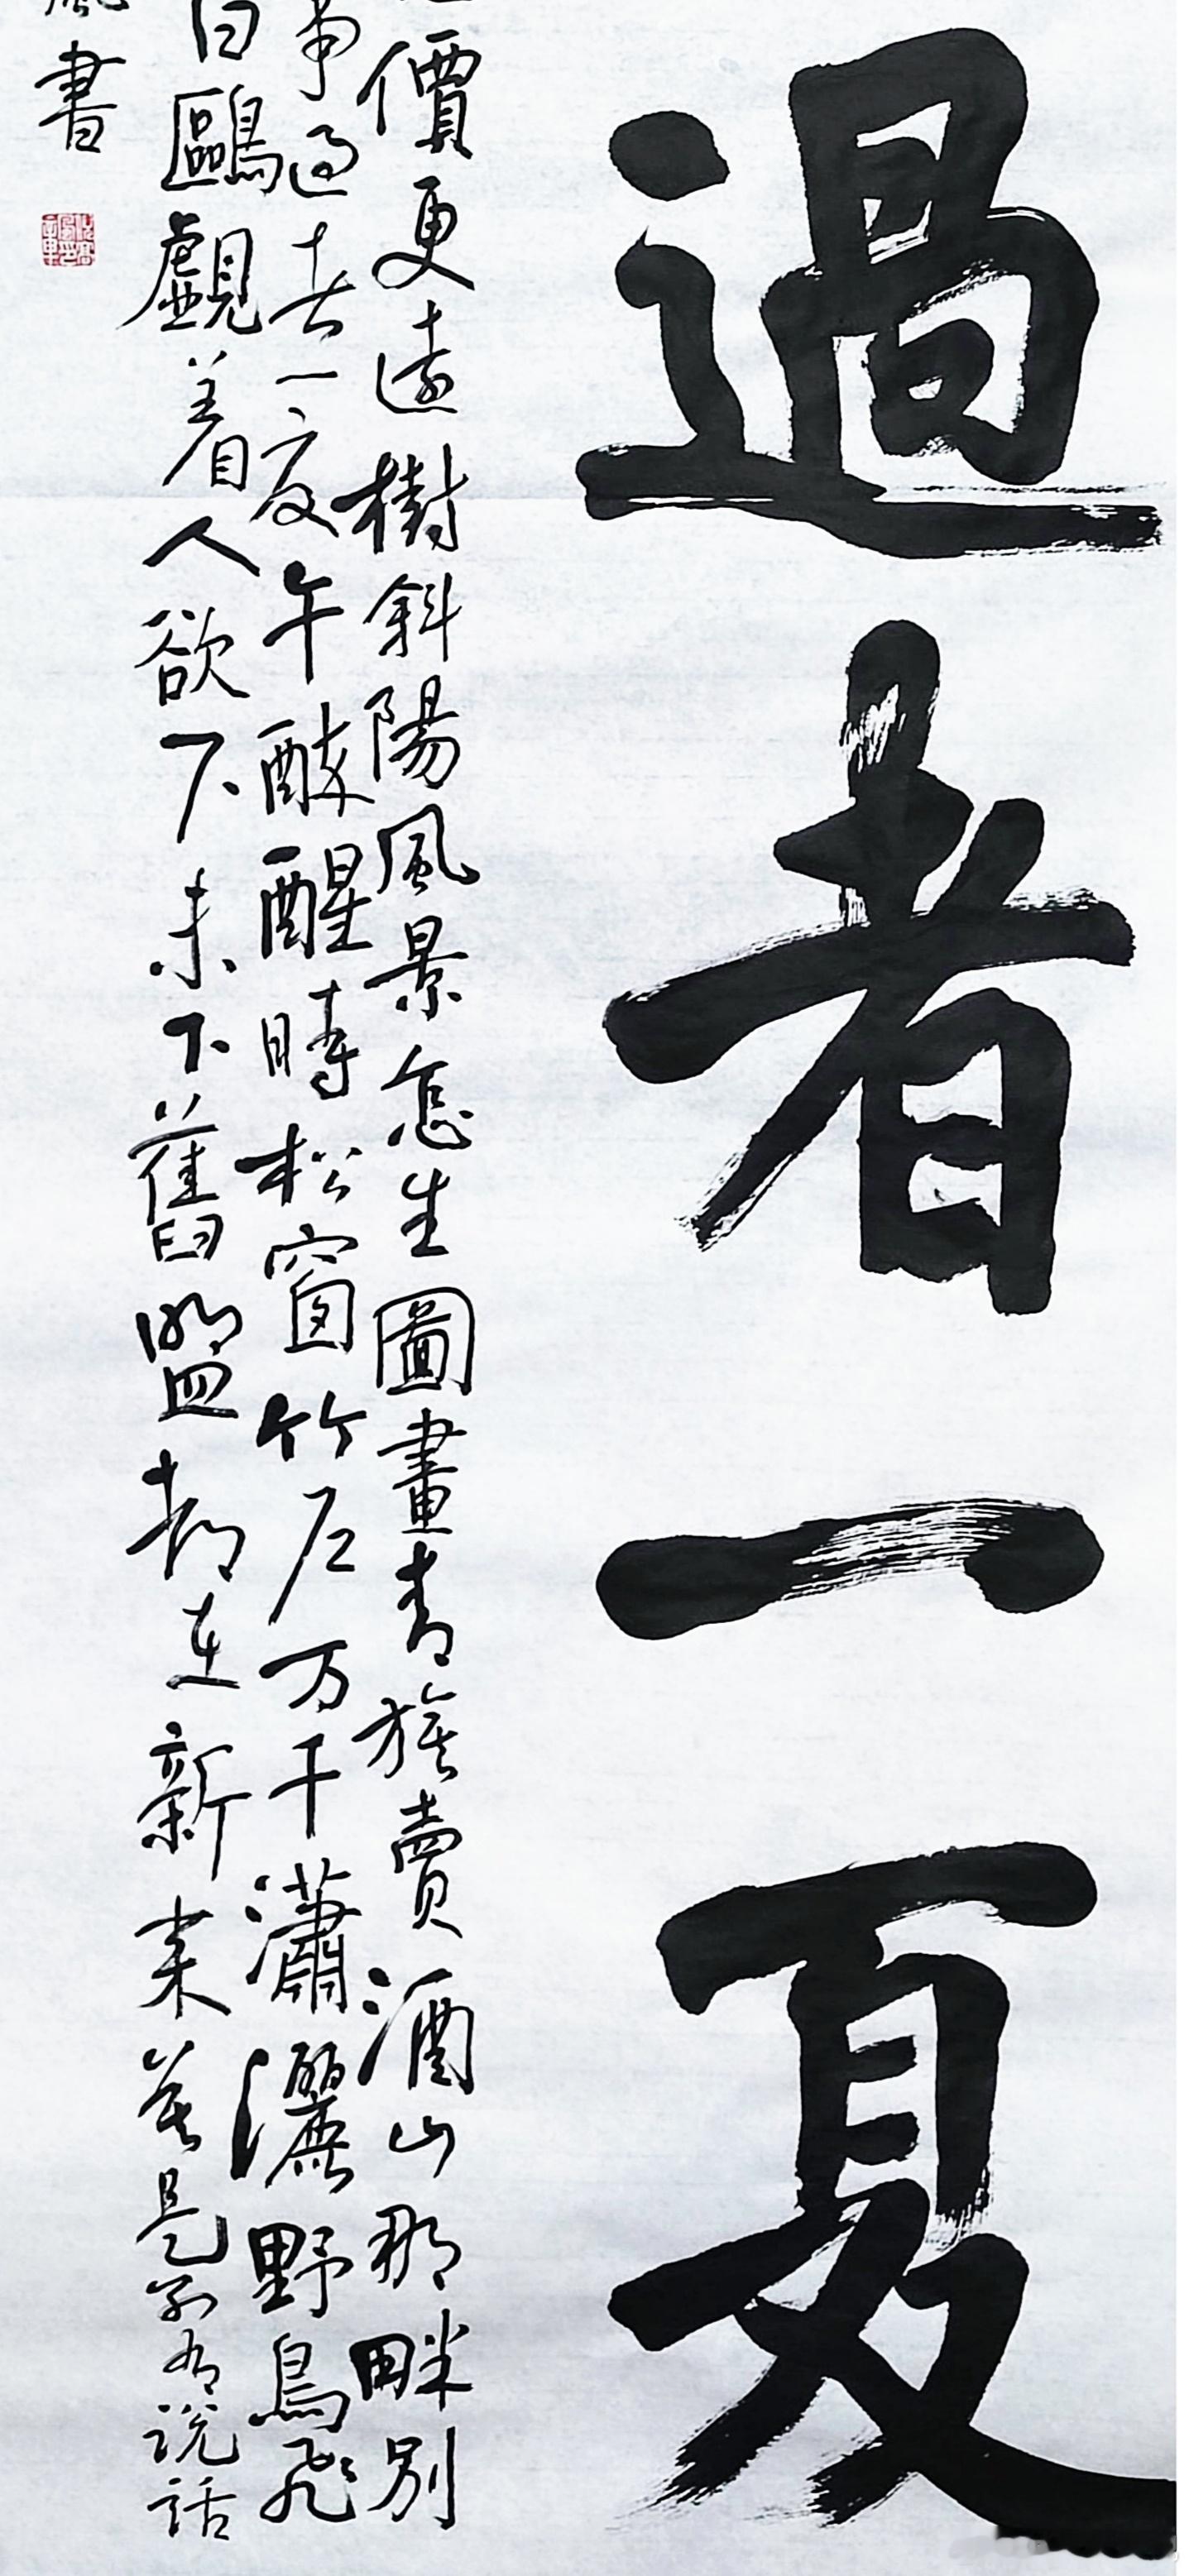 過者一夏
價更遠樹斜陽風景怎生圖畫青旗賣酒山那畔別
事過者一夏午醉醒時松窗竹戶万千瀟灑野鳥飛
白鷗覷着人欲下未下舊盟都在新來莫是別有說話
書